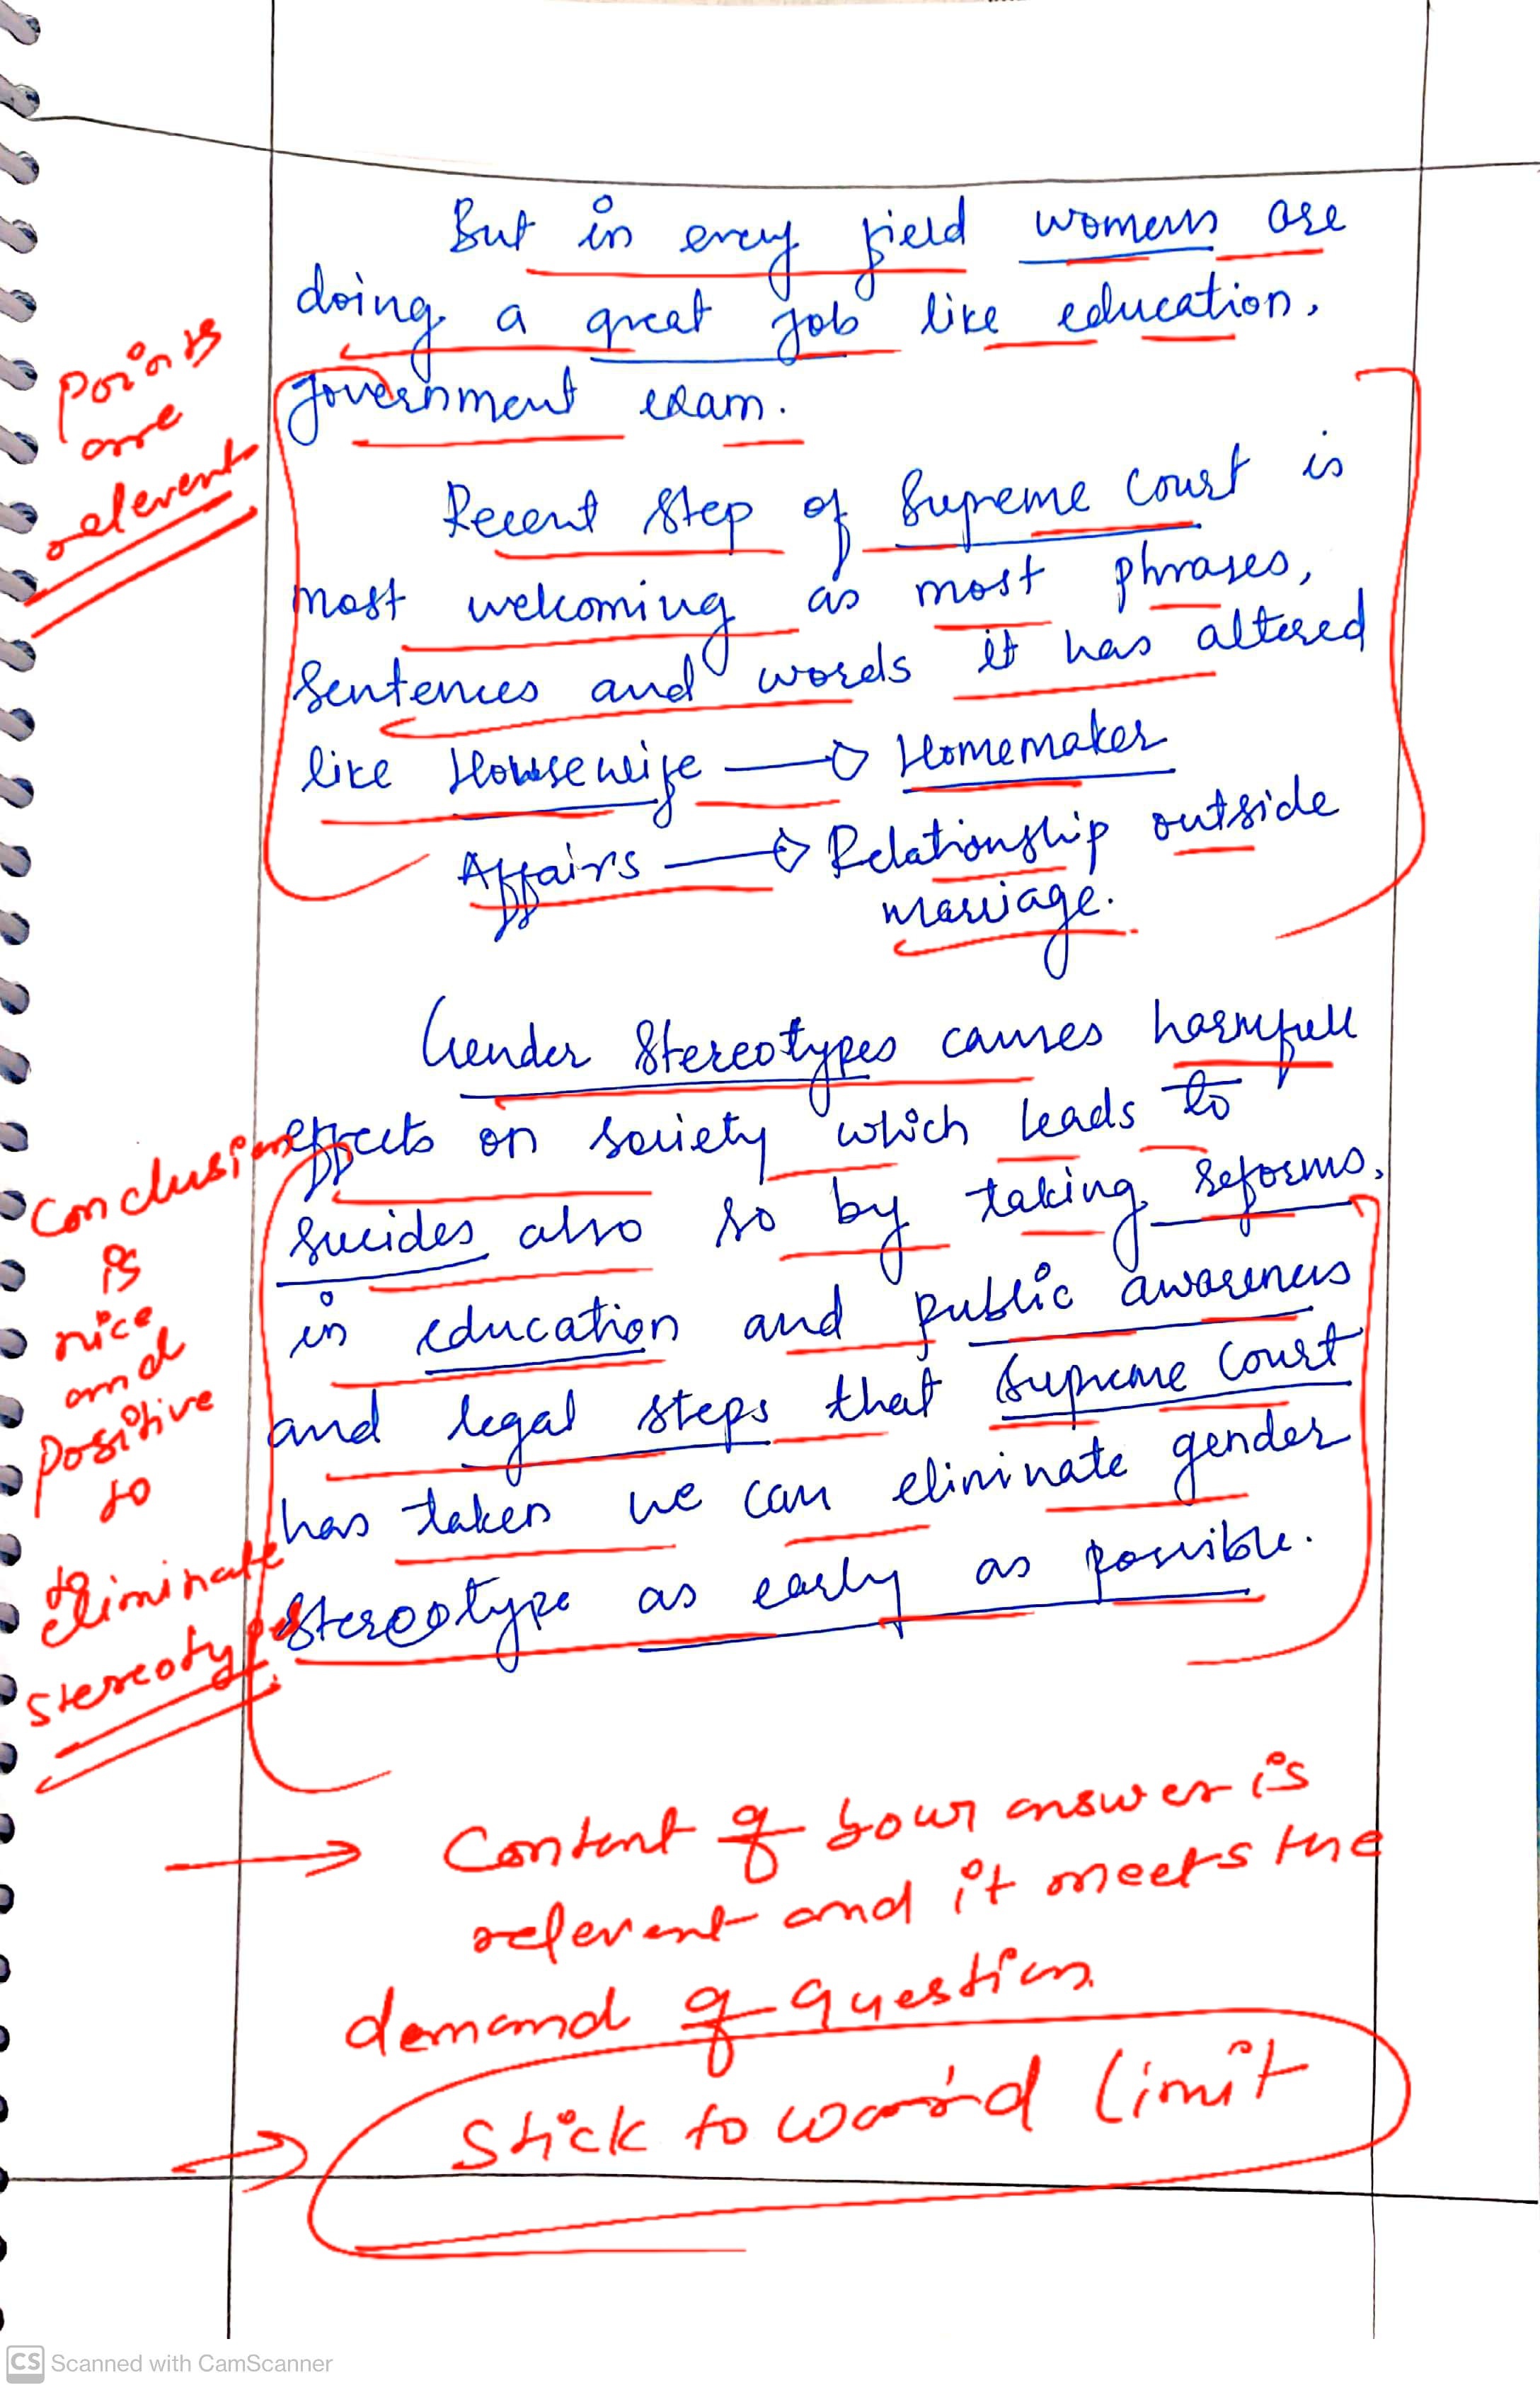 But in every field womens are
doing a great job like education,
government exam.
Points
are
relevent
Recent step of Supreme Court is
most welcoming as most phrases,
sentences and words it has altered
like Housewife → Homemaker
Affairs → Relationship outside
marriage.
Gender Stereotypes causes harmfull
effects on society which leads to
sucides also so by taking reforms,
in education and public awareness
and legal steps that Supreme Court
has taken we can eliminate gender
stereotype as early as possible.
Conclusion
is
nice
and
positive
to
eliminate
stereotypes
→ Content of your answer is
relevent and it meets the
demand of question
→ Stick to word limit
CS Scanned with CamScanner